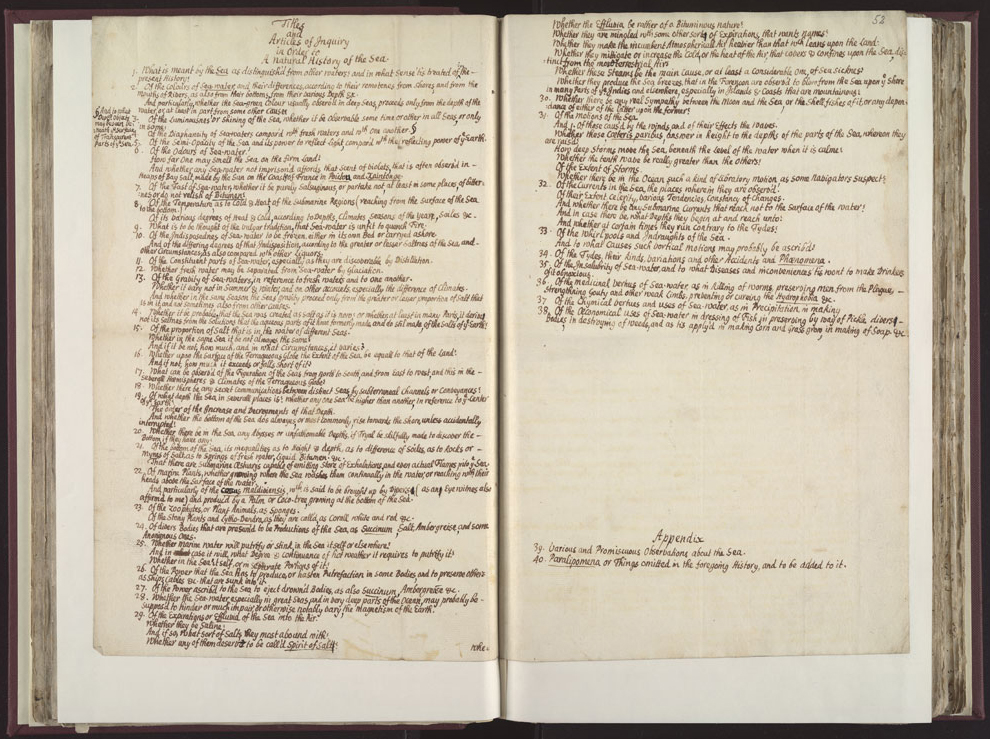 Titles
and
Articles of Inquiry
in Order to
A natural History of the Sea
1. What is meant by the Sea as distinguished from other waters: and in what sense 'tis treated of the-
present History?
2. Of the Colours of Sea-water, and their differences, according to their remoteness from shores and from the
mouths of Rivers, as also from their various Depth &c.
And particularly, whether the Sea-green Colour usually observ'd in deep Seas, proceeds only from the depth of the
water, or at least in part from some other cause.
3. Of the Luminousness or shining of the Sea, whether it be observable some time or other in all Seas or only
in some.
4. Of the Diaphaneity of Sea-waters compar'd wth fresh waters and wth one another.
5. Of the Semi-Opacity of the Sea and its power to reflect Light compar'd wth ye reflecting power of ye Earth.
6. Of the Odours of Sea-water.
How far one may smell the Sea on the firm land?
And whether any Sea-water not imprison'd affords that scent of violets, that is often observ'd in-
heaps of Bay Salt, made by the Sun on the Coasts of France in Poictou and Xaintonge.
7. Of the Tast of Sea-water, whether it be purely Salsuginous, or partake not at least in some places of bitter-
ness or do not relish of Bitumen.
8. Of the Temperature as to Cold & Heat of the Submarine Regions, reaching from the surface of the Sea
to the bottom.
Of its various degrees of Heat & Cold, according to Depths, Climates, seasons of the year, Gales &c.
9. What is to be thought of the vulgar tradition, that Sea-water is unfit to quench Fire.
10. Of the Indisposedness of Sea-water to be frozen either in its own Bed or carryed ashore
And of the differing degrees of that Indisposition, according to the greater or lesser Saltness of the Sea, and-
other Circumstances, as also compared wth other Liquors.
11. Of the Constituent parts of Sea-water, especially as they are discoverable by Distillation.
12. Whether fresh water may be separated from Sea-water by Glaciation.
13. Of the Gravity of Sea-waters, in reference to fresh waters and to one another.
Whether it vary not in Summer & winter, and on other Accounts, especially the difference of Climates.
And whether in the same Season the Sea's gravity proceed only from the greater or lesser proportion of salt that
is in it, and not sometimes also from other Causes.
14. Whether it be probable, that the Sea was created as salt as it is now; or whether at least in many Parts, it derive
not its Saltness from the Solutions that the aqueous parts of it have formerly made, and do still make of the Salts of ye Earth?
15. Of the proportion of salt that is in the water of different Seas.
Whether in the same Sea it be not always the same?
And if it be not, how much, and in what Circumstances, it varies?
16. Whether upon the Surface of the Terraqueous Globe the Extent of the Sea, be equall to that of the Land?
And if not, how much it exceeds or falls short of it?
17. What can be observ'd of the Figuration of the Seas from North to South, and from East to West, and this in the-
severall Hemispheres & Climates of the Terraqueous Globe?
18. Whether there be any secret Communications between distinct Seas by subterraneal Channels or Conveyances?
19. Of what depth the Sea, in severall places is? whether any one Sea be higher than another, in reference to ye Center
of ye Earth?
The order of the Increase and Decrements of that Depth.
And whether the bottom of the Sea dos always, or most commonly rise towards the shore, unless accidentally
interrupted?
20. Whether there be in the Sea, any Abysses or unfathomable Depths, if Tryal be skilfully made to discover the-
Bottom, if they have any?
21. Of the bottom of the Sea, its inequalities as to Height & depth, as to difference of Soiles, as to Rocks or-
Mynes of Salt, as to Springs of fresh water, liquid Bitumen &c.
That there are submarine Æstuary's capable of emitting Store of Exhalations, and even actual Flames into ye Sea.
22. Of marine Plants, whether growing where the Sea washes them continually in the water, or reaching wth their
heads above the Surface of the water.
And particularly of the Coccus maldivensis, wch is said to be brought up by Divers (as an Eye witness also
affirm'd to me) and produc'd by a Palm or Coco-tree, growing at the bottom of the Sea.
23. Of the Zoophytes, or Plant Animals, as Sponges.
Of the Stony Plants and Lytho-Dendra, as they are call'd, as Corall white and red &c.
24. Of divers Bodies that are presum'd to be Productions of the Sea, as Succinum, Salt, Ambergreise, and some
Anonymous Ones.
25. Whether Marine water will putrify or stink, in the Sea it self or elsewhere?
And in case it will, what Degree & continuance of hot weather it requires to putrify it?
Whether in the Sea it self, or in seperate Portions of it?
26. Of the Power that the Sea has to produce, or hasten Putrefaction in some Bodies, and to preserve others
as Ships, cables &c. that are sunk into it.
27. Of the Power ascrib'd to the Sea to eject drown'd Bodies, as also Succinum, Ambergreise &c.
28. Whether the Sea-water, especially in great Seas, and in very deep parts of the Ocean, may probably be-
suppos'd to hinder or much impair, or otherwise notably vary the Magnetism of the Earth?
29. Of the Expirations or Effluvia of the Sea into the Air.
Whether they be Saline?
And if so, what sort of Salts they most abound with?
Whether any of them deserve to be call'd Spirit of Salt?
Whe-
52
Whether the Effluvia be rather of a Bituminous nature?
Whether they are mingled wth some other sorts of Expirations, that wants names?
Whether they make the incumbent Atmospherical Air heavier than that wch leans upon the Land.
Whether they mitigate or increase the Cold, or the heat of the Air, that covers & confines upon the Sea, dis-
tinct from the meer terrestrial Air?
Whether these steams be the main cause, or at least a considerable one, of Sea sickness?
Whether they produce the Sea breezes, that in the Forenoon are observ'd to blow from the Sea upon ye shore
in many parts of ye Indies and elsewhere, especially in Islands & Coasts that are mountainous?
30. Whether there be any real Sympathy between the Moon and the Sea or the Shell fishes of it, or any depen-
dance of either of the latter upon the former?
31. Of the motions of the Sea.
And 1. of those caus'd by the winds, and of their Effects the waves.
Whether those Cæteris paribus, answer in height to the depths of the parts of the Sea, whereon they
are rais'd?
How deep storms move the Sea, beneath the level of the water when it is calme?
Whether the tenth wave be really greater than the others?
Of the Extent of Storms.
Whether there be in the Ocean such a kind of vibratory motion, as some Navigators suspect?
32. Of the Currents in the Sea, the places wherein they are observ'd.
Of their Extent, celerity, various Tendencies, Constancy or Changes.
And whether there be any Submarine Currents that reach not to the Surface of the water?
And in case there be, what Depths they begin at and reach unto?
And whether at certain times they run contrary to the Tydes?
33. Of the Whirl pools and Indraughts of the Sea.-
And to what Causes such vortical motions may probably be ascrib'd?
34. Of the Tydes, their kinds, variations and other Accidents and Phænomena.
35. Of the Insalubrity of Sea-water, and to what Diseases and inconveniences 'tis wont to make Drinkers
of it obnoxious.
36. Of the medicinal vertues of Sea-water, as in killing of worms, preserving men from the Plague,-
strengthning Gouty and other weak Limbs, preventing or cureing the Hydrophobia &c.
37. Of the Chymical vertues and uses of Sea-water, as in Precipitation, in making
38. Of the Œconomical uses of Sea-water in dressing of Fish, in preserving by way of Pickle, divers-
Bodies in destroying of weeds, and as tis apply'd in making Corn and grass grow, in making of Soap. &c.
Appendix
39. Various and Promiscuous Observations about the Sea.
40. Paralipomena, or Things omitted in the foregoing History, and to be added to it.